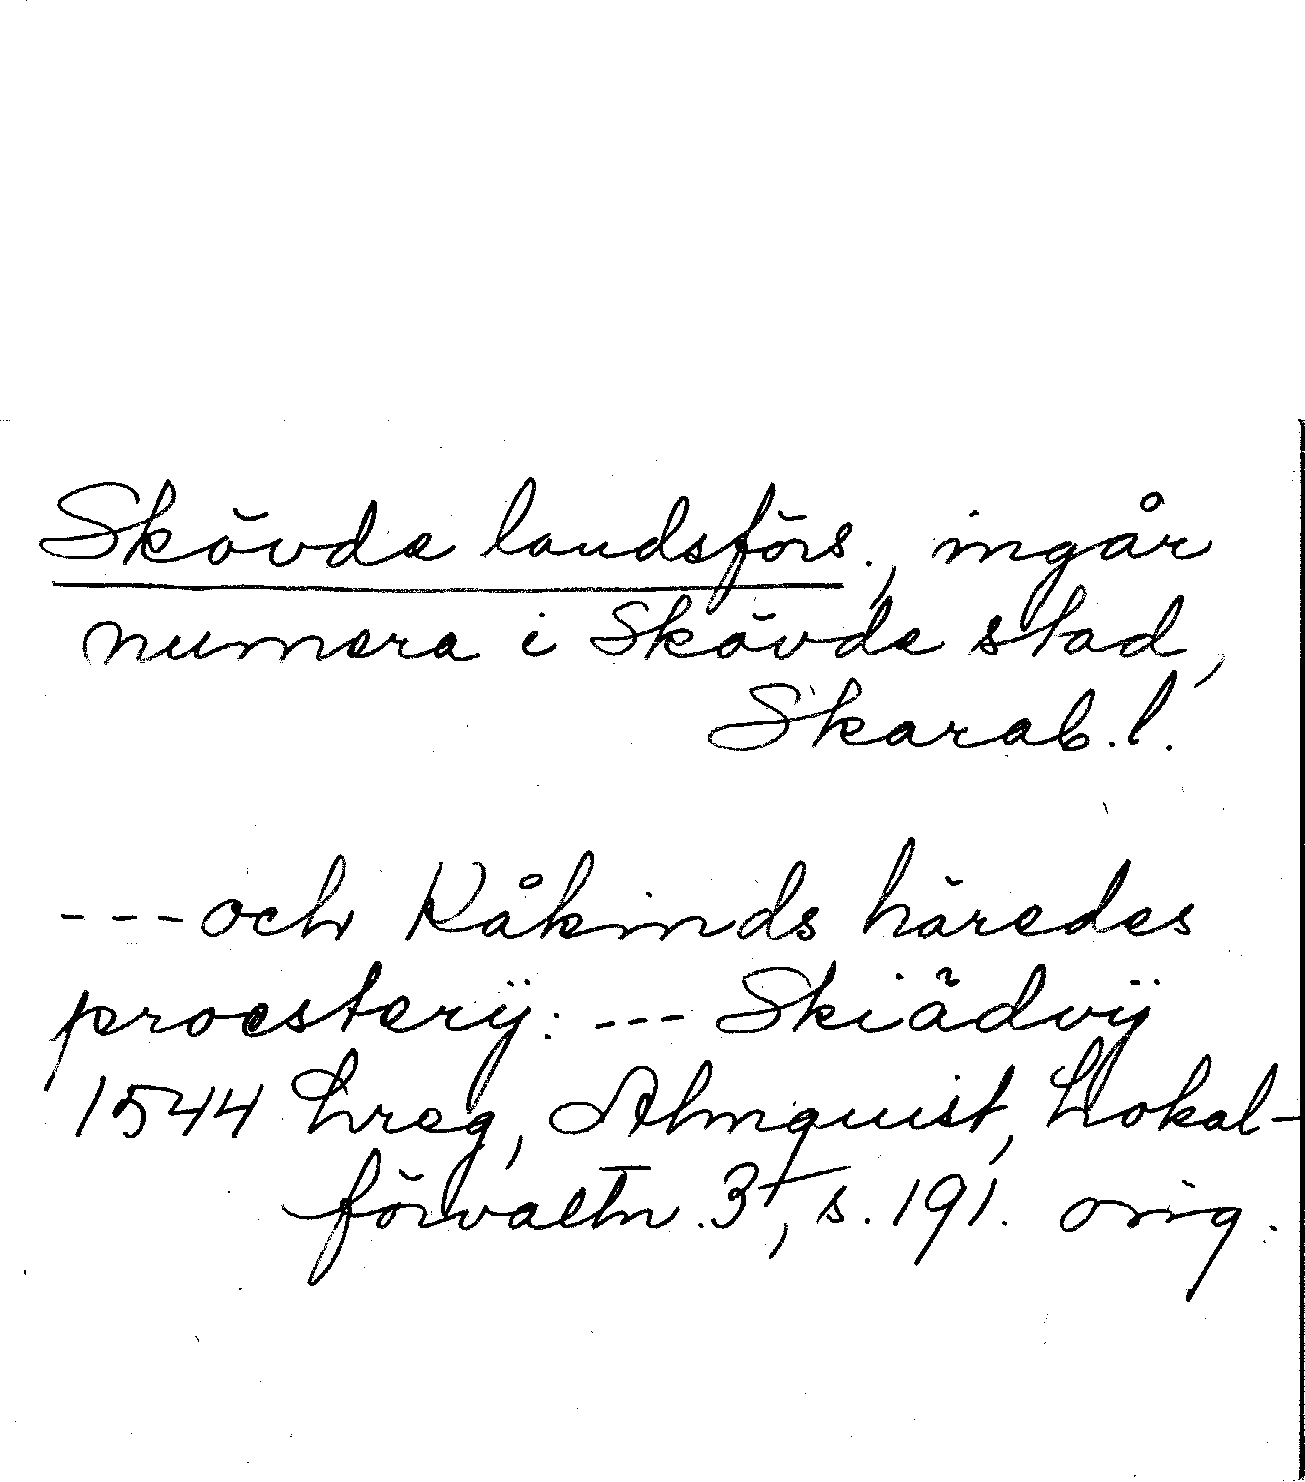 Skövde landsförs., ingår
numera i Skövde stad,
Skarab. l.
---och Kåkinds häredes
proesterÿ: --- Skiädvÿ
1544 Lreg, Almquist, Lokal-
förvaltn. 3, s. 191. orig.